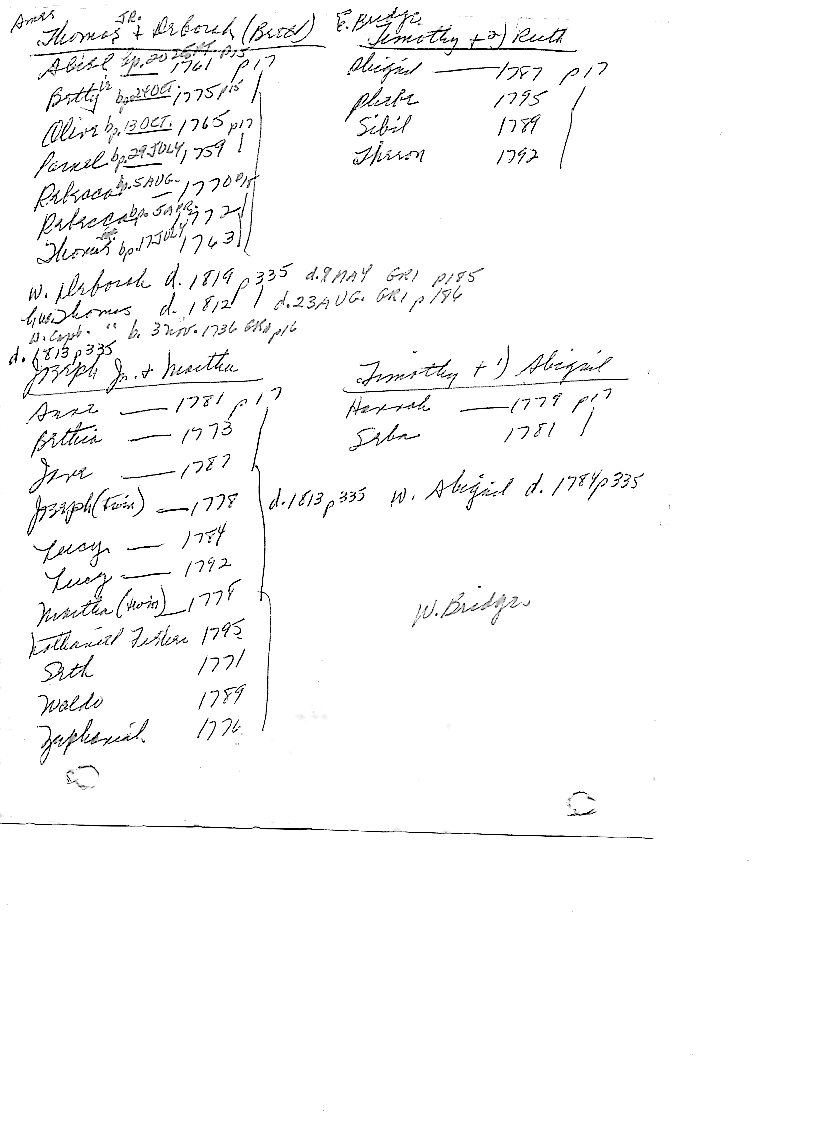 Ames
Thomas JR. + Deborah (Breed)
Abiel bp. 20 SEPT. 1761 p15 p17
Betty bp. 24 OCT. 1775 p15
Olive bp. 13 OCT. 1765 p17
Parnel bp. 29 JULY, 1759
Rebecca bp. 5 AUG. 1770 p15
Rebecca bp. 5 APR. 1772
Thomas bp. 17 JULY, 1763
w. Deborah d. 1819 p335 d. 8 MAY GR1 p185
Thomas d. 1812 d. 23 AUG. GR1 p186
Capt. " b. 3 Nov. 1736 p16
d. 1813 p335
Joseph Jr. + Martha
Anne — 1781 p17
Bethia — 1773
Jane — 1787
Joseph (twin) — 1778
Lucy — 1784
Lucy — 1792
Martha (twin) 1778
Nathaniel 1795
Seth 1771
Waldo 1789
Zephaniah 1776
E. Bridge.
Timothy + 2) Ruth
Abigail — 1787 p17
Phebe 1795
Sibil 1789
Theron 1792
Timothy + 1) Abigail
Hannah — 1779 p17
Seba 1781
d. 1813 p335 w. Abigail d. 1784 p335
W. Bridge.